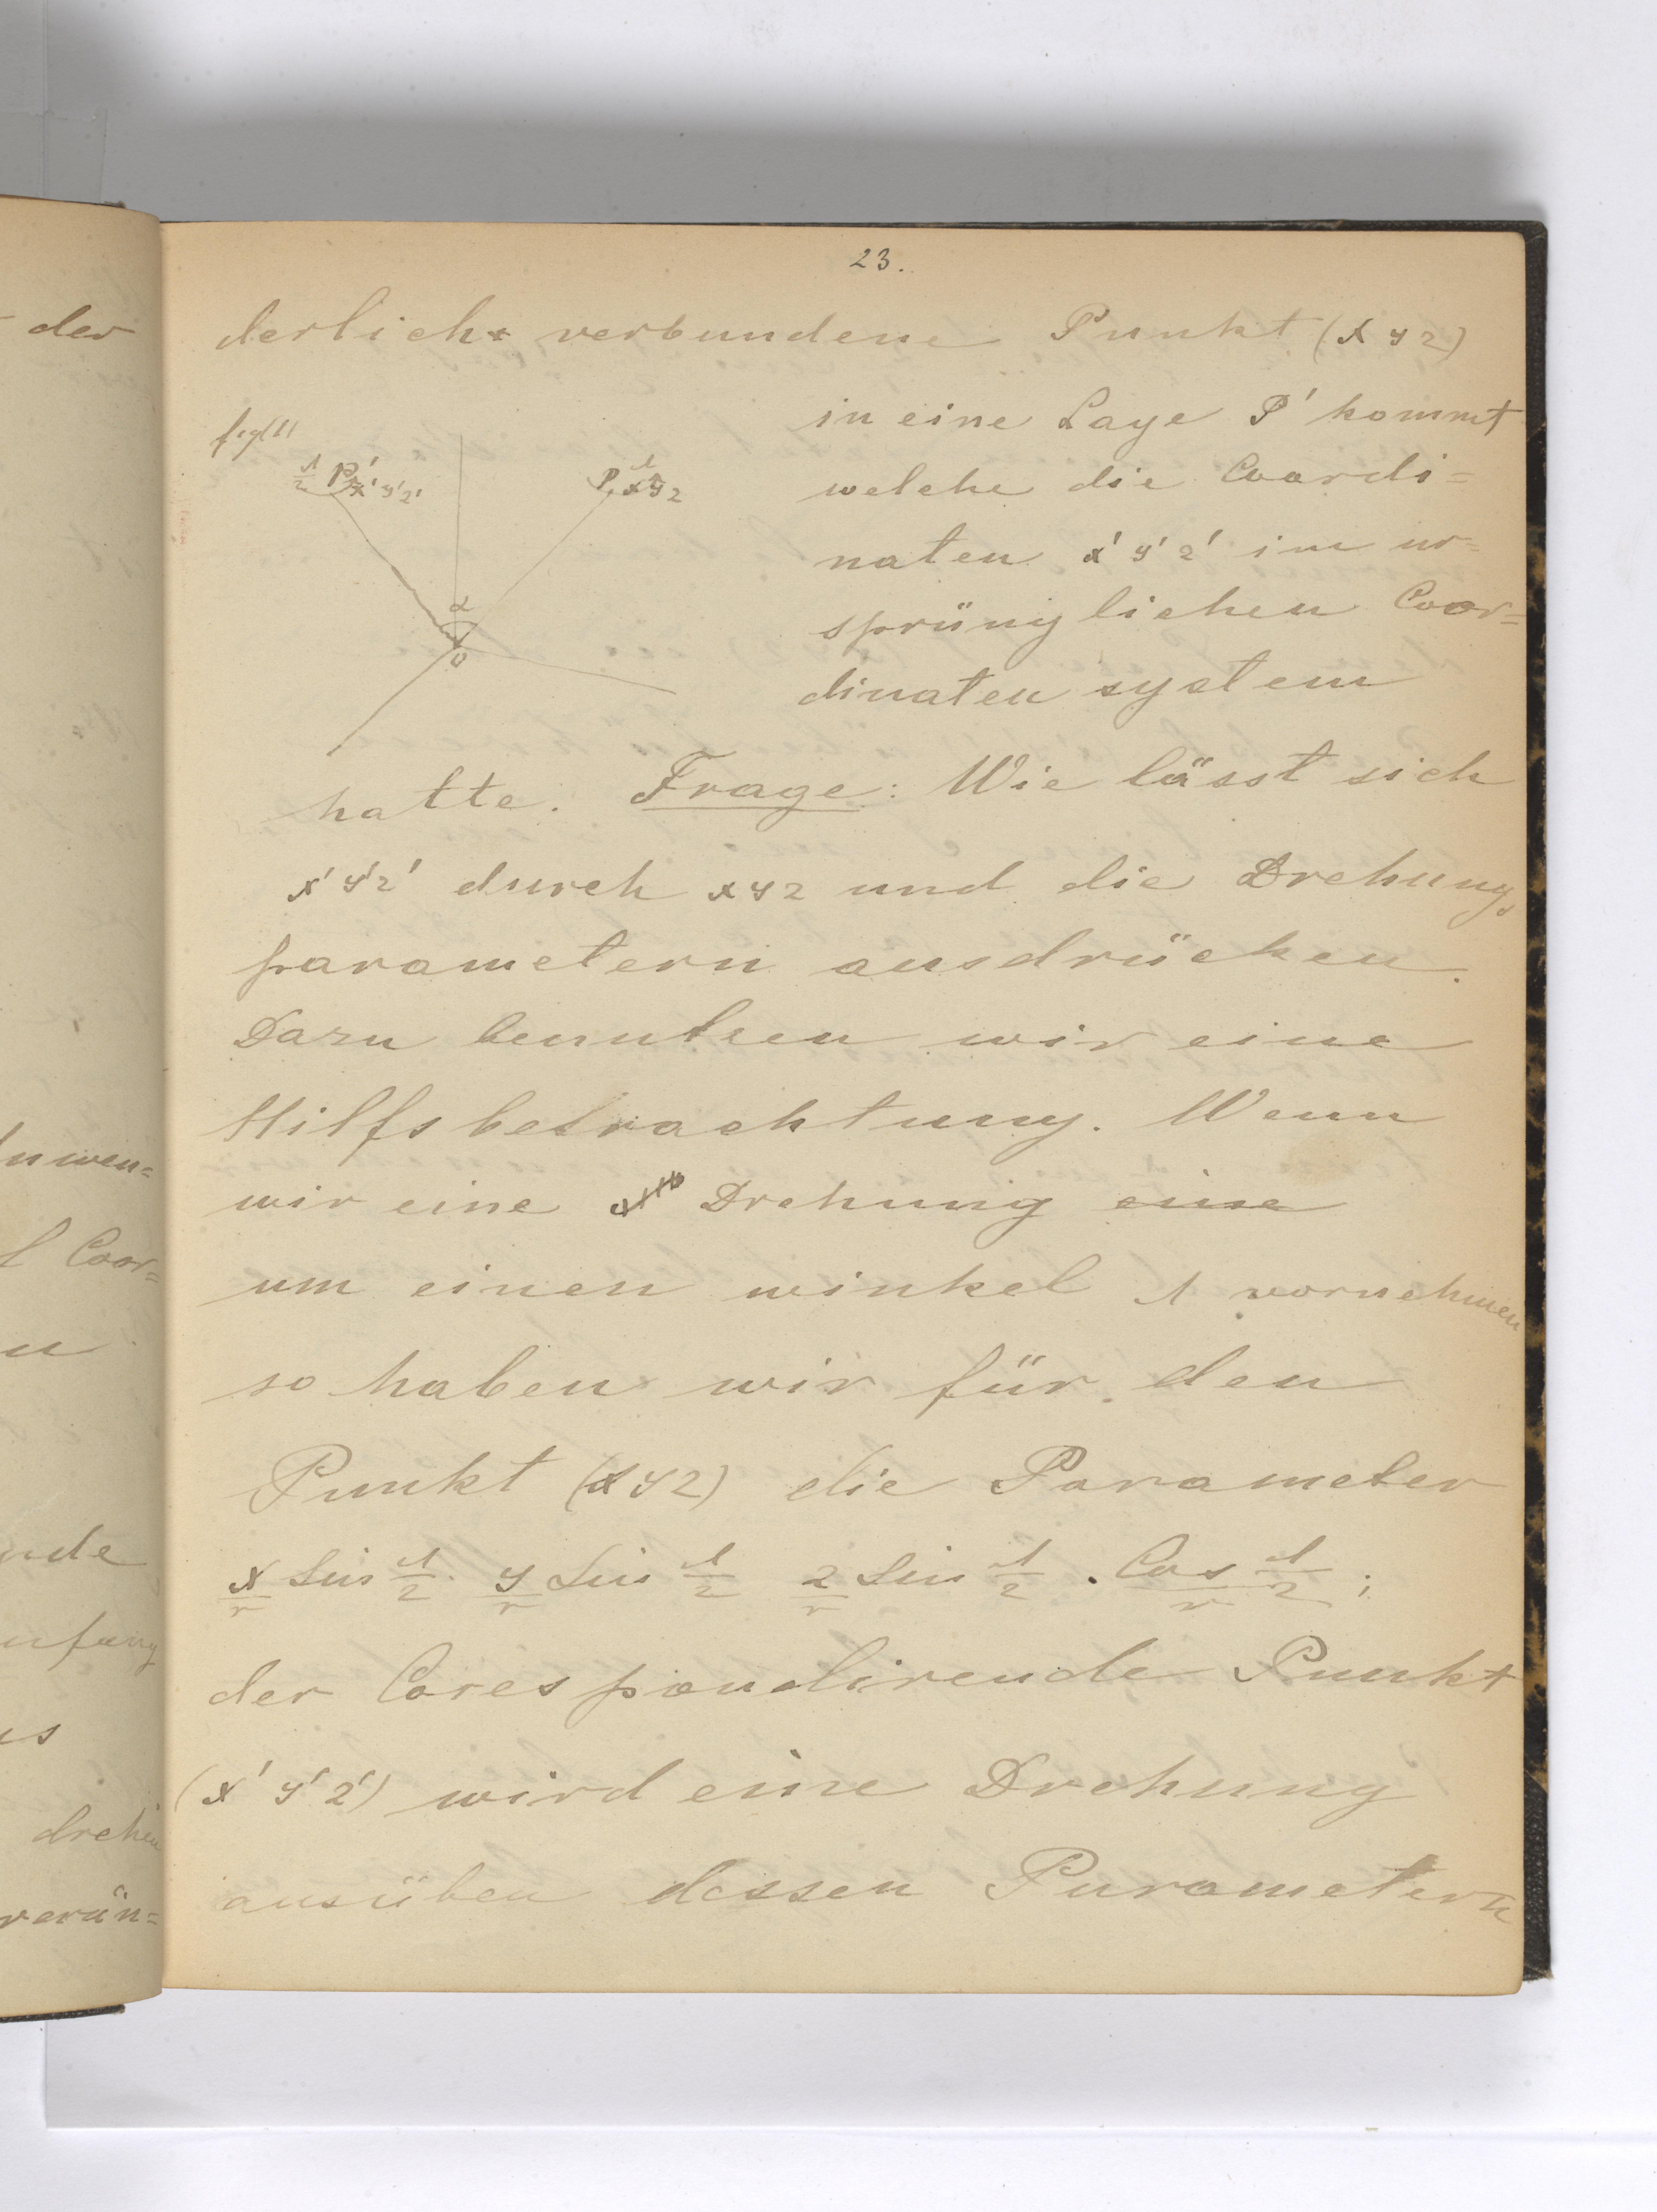 23.
derlich verbundene Punkt (x y z)
in eine Lage P' kommt
fig(1)
P' x' y' z'
P x y z
welche die Coordi=
naten x' y' z' im ur=
α
sprünglichen Coor=
O
dinaten system
hatte. Frage: Wie lässt sich
x' y' z' durch x y z und die Drehungs
parametern ausdrücken.
Dazu benutzen wir eine
Hilfsbetrachtung. Wenn
wir eine Drehung eine
um einen winkel Λ vornehmen
so haben wir für den
Punkt (x y z) die Parameter
x/r Sin Λ/2 y/r Sin Λ/2 z/r Sin Λ/2 . Cos Λ/2 ;
der Corespondirende Punkt
(x' y' z') wird eine Drehung
ausüben dessen Parametern
der
nwen=
Coor=
u
nde
nfang
us
drehen
verän=